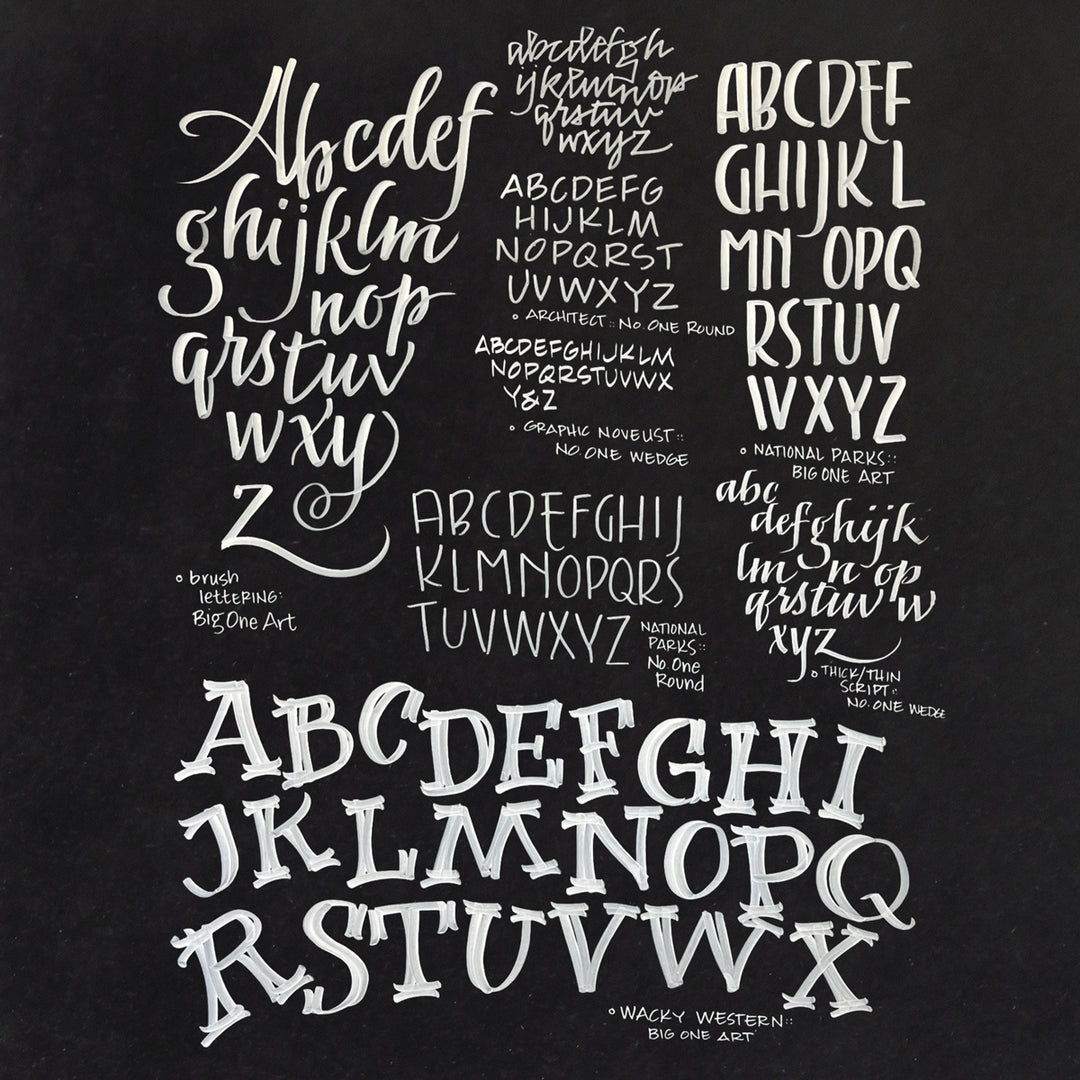 Abcdef
ghijklm
nop
qrstuv
wxy
z
° brush
lettering:
Big One Art
abcdefgh
ijklmnop
qrstuv
wxyz
ABCDEFG
HIJKLM
NOPQRST
UVWXYZ
° ARCHITECT :: No. ONE ROUND
ABCDEFGHIJKLM
NOPQRSTUVWX
Y&Z
° GRAPHIC NOVELIST ::
NO. ONE WEDGE
ABCDEF
GHIJKL
MN OPQ
RSTUV
WXYZ
° NATIONAL PARKS ::
BIG ONE ART
ABCDEFGHIJ
KLMNOPQRS
TUVWXYZ
NATIONAL
PARKS ::
No. One
Round
abc
defghijk
lm n op
qrstuv w
xyz
° THICK/THIN
SCRIPT ::
NO. ONE WEDGE
ABCDEFGHI
JKLMNOPQ
RSTUVWX
° WACKY WESTERN ::
BIG ONE ART